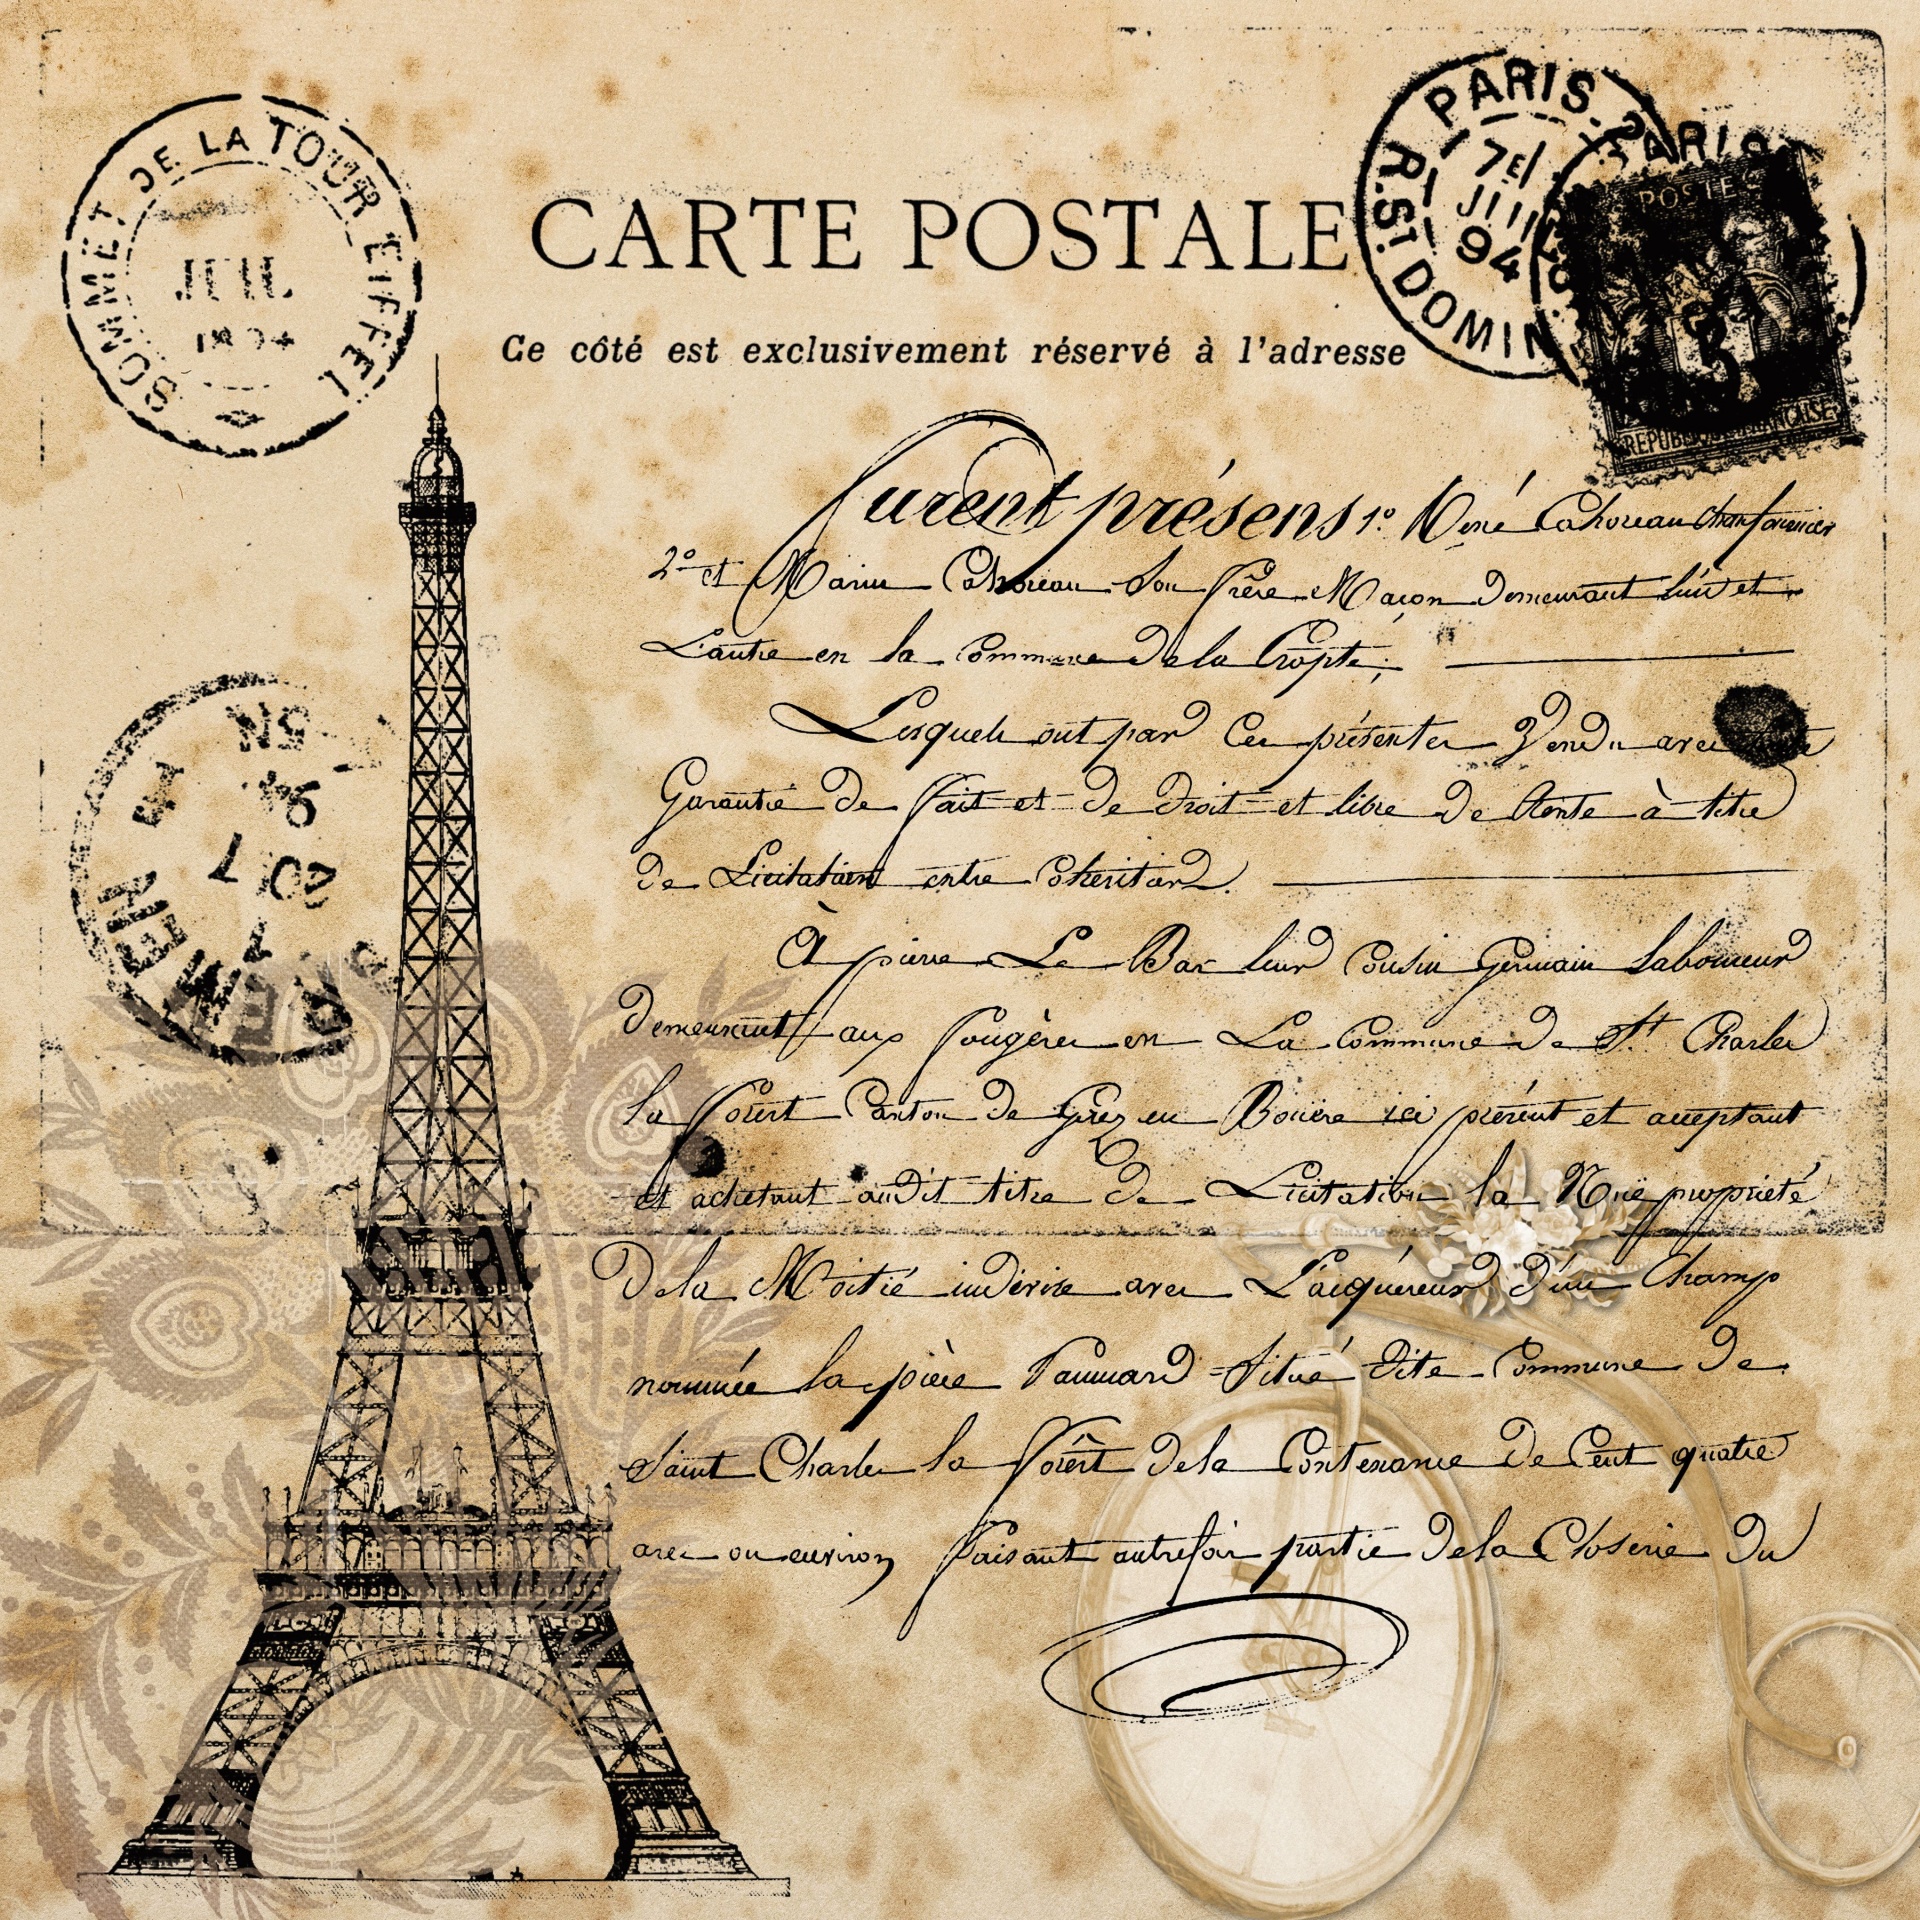 SOMMET DE LA TOUR EIFFEL
JUIL
1894
PARIS
7E/
94
R. ST. DOMIN
PARIS
POSTES
REPUBLIQUE FRANCAISE
CARTE POSTALE
Ce côté est exclusivement réservé à l'adresse
furent présens 1º. René Cahoreau Chaufournier
2º et Marin Cahoreau Son frère Maçon Demeurant l'un et
L'autre en la Commune Dela Cropte;
Lesquels ont par Ces présentes Vendu avec
Garantie de fait et de droit et libre de Rente à titre
de Licitation entre Cohéritiers.
À pierre Le Bas leur Cousin Germain laboureur
demeurant aux fougères en La Commune de St Charles
la forêt Canton de Grez en Bouère ici présent et acceptant
et achetant audit titre de Licitation la Nüe propriété
Dela Moitié indivise avec L'acquéreur d'un Champ
nommée la pièce Situé dite Commune de
Saint Charles la forêt Dela Contenance de Cent quatre
ares ou environ faisant autrefois partie Dela Closerie Du